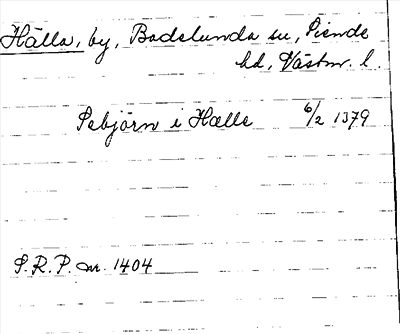 Hälla, by, Badelunda sn, Siende
hd, Västm. l.
Sebjörn i Hælle 6/2 1379
S.R.P. nr. 1404